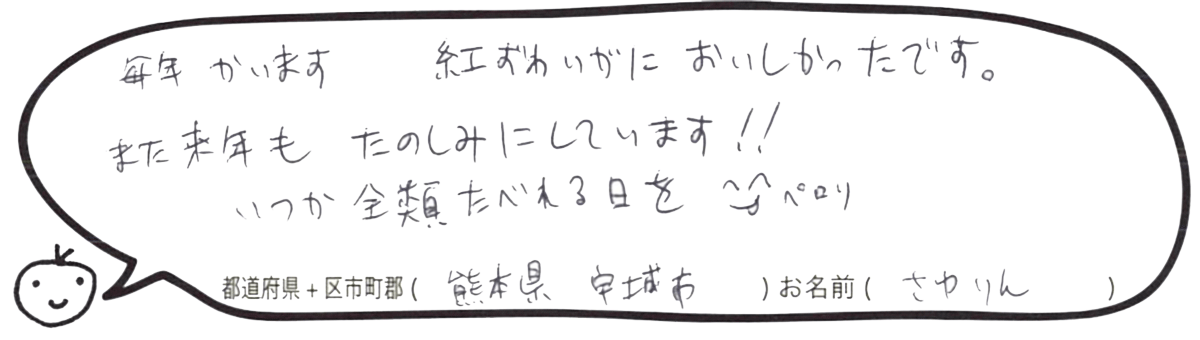 毎年 かいます 紅ずわいがに おいしかったです。
また来年も たのしみにしています!!
いつか 全類たべれる日を ペロリ
都道府県+区市町郡( 熊本県 宇城市 )お名前( さやりん )